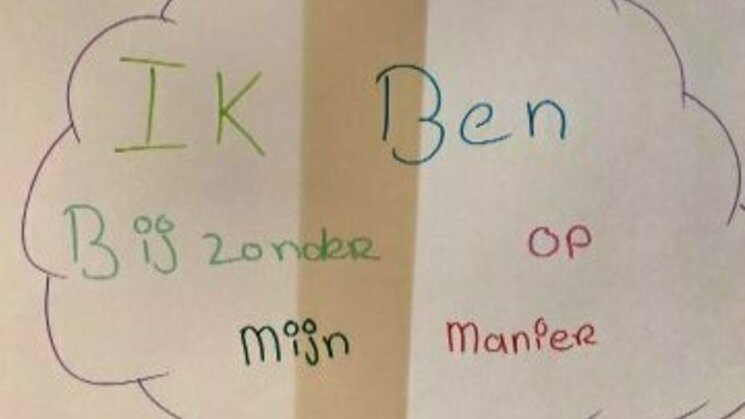 IK Ben
Bijzonder op
mijn manier